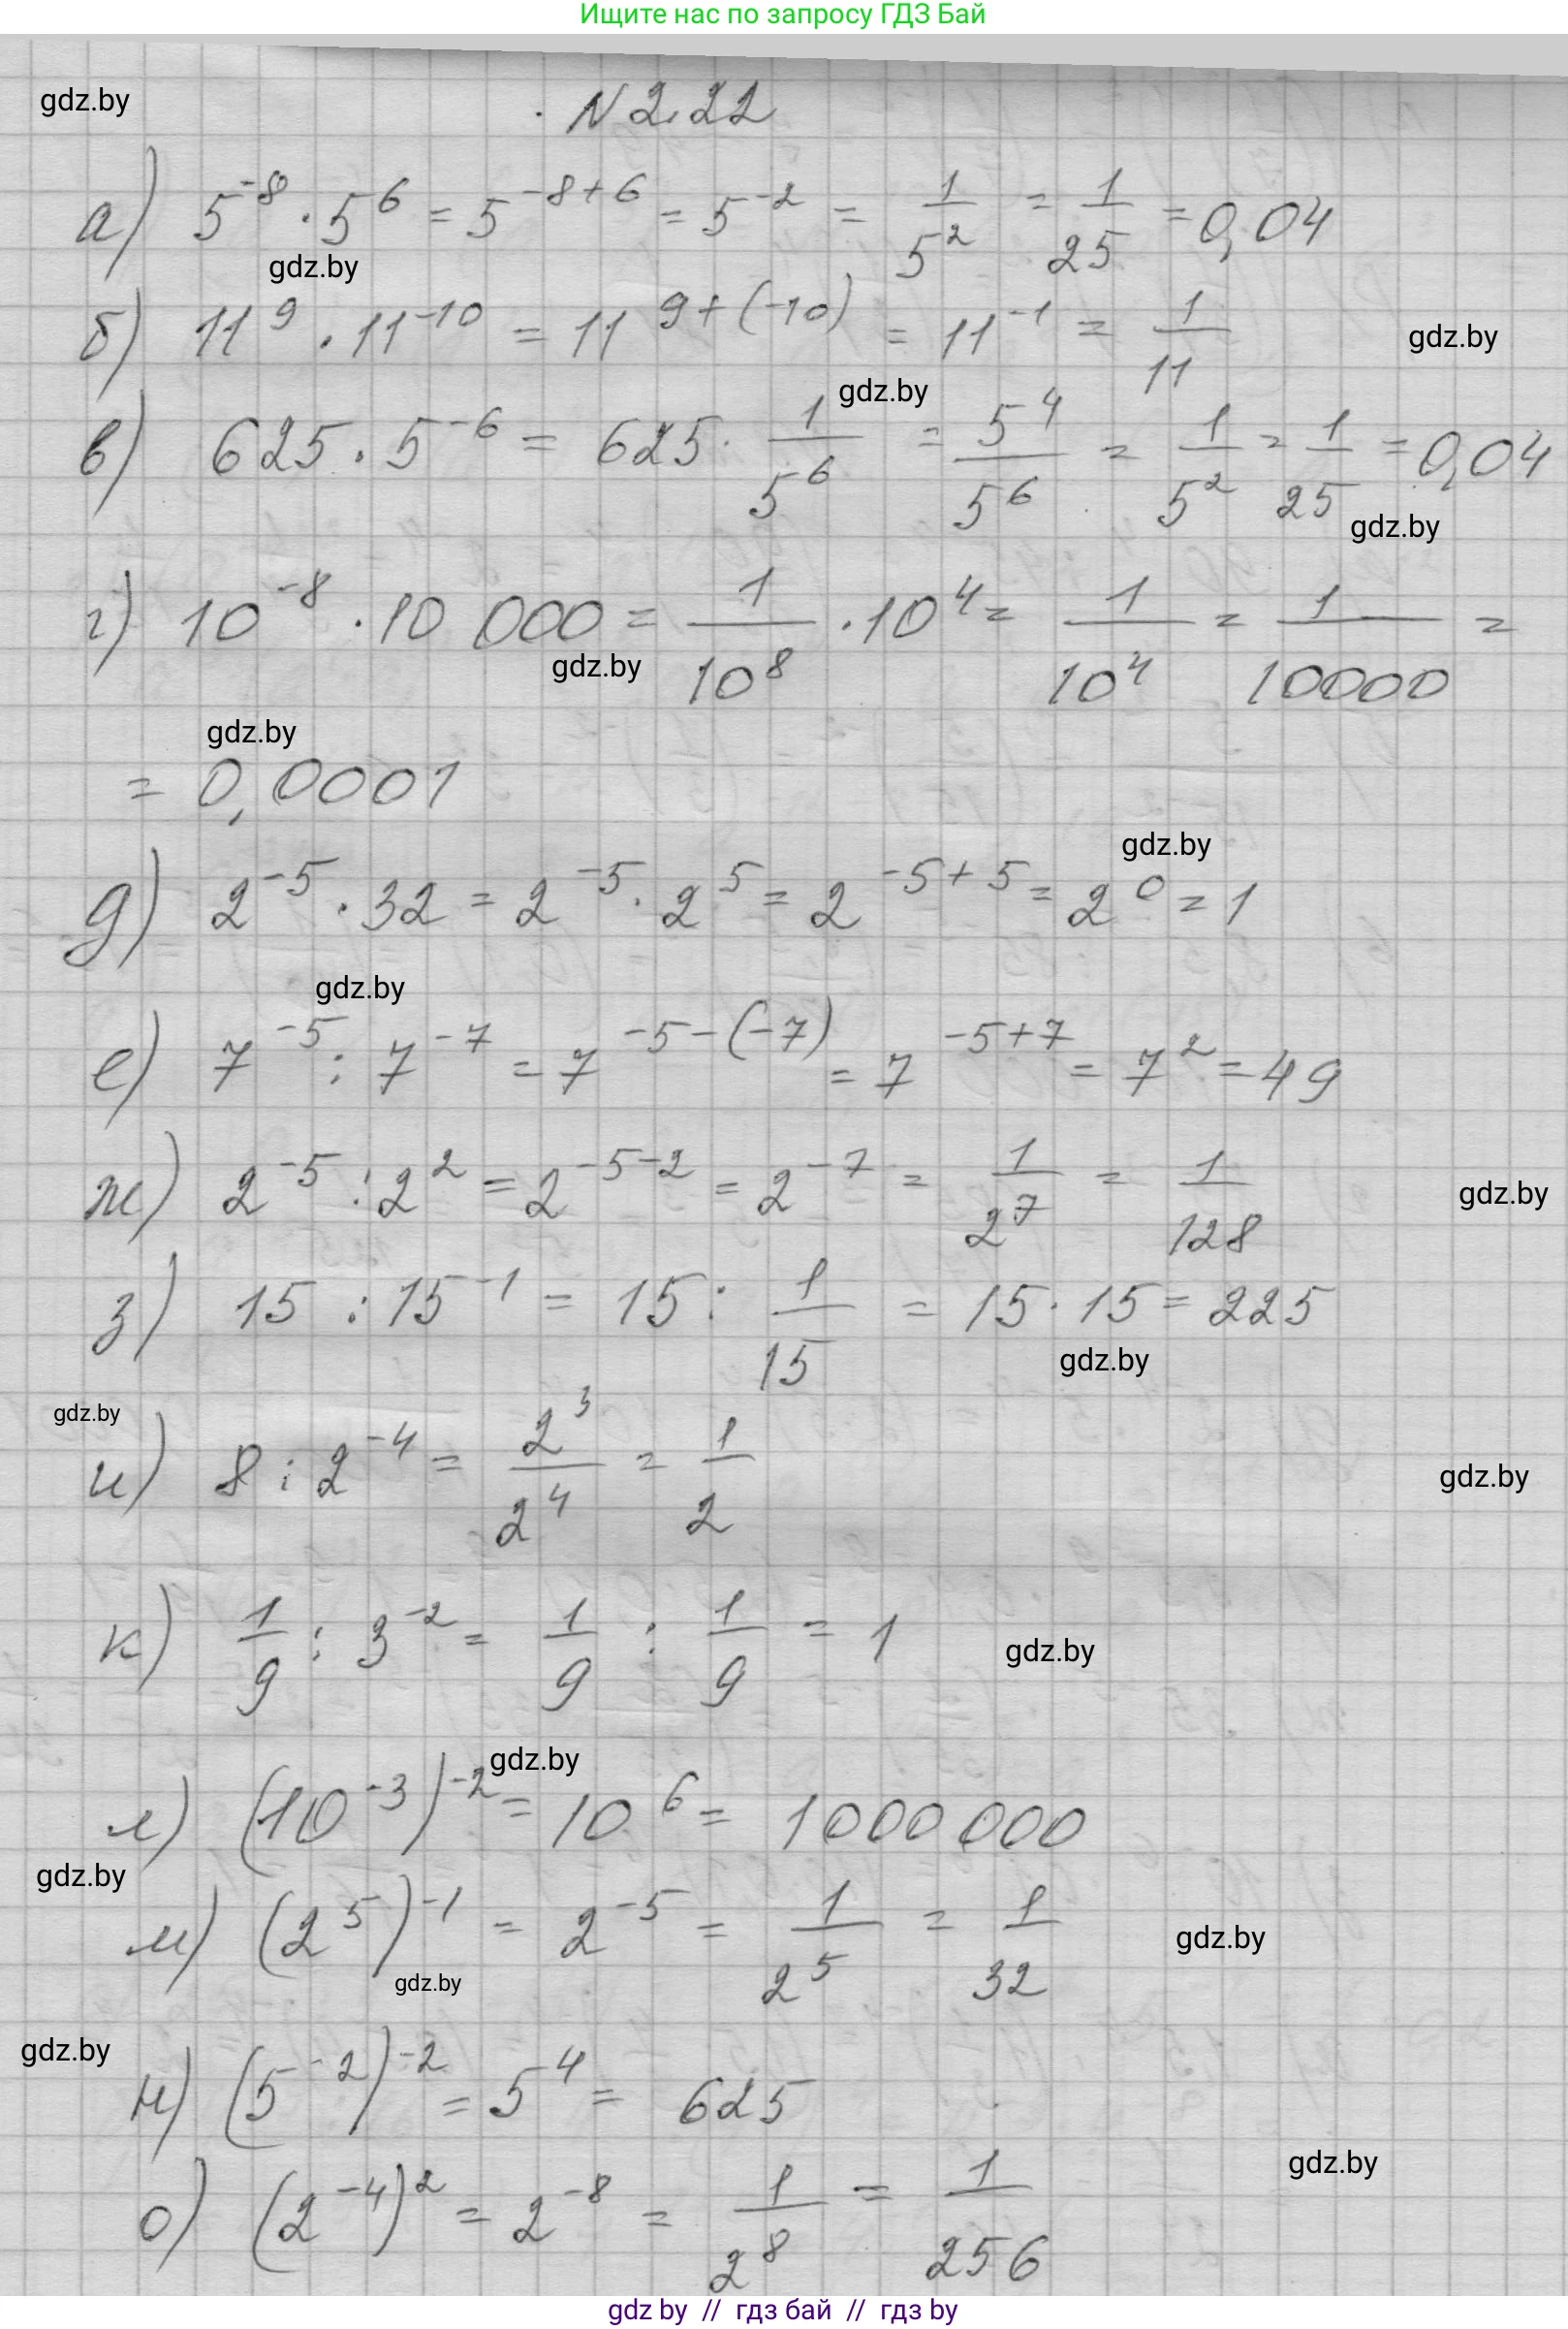 Ищите нас по запросу ГДЗ Бай
gdz.by
N 2.22
а) 5⁻⁸ · 5⁶ = 5⁻⁸⁺⁶ = 5⁻² = 1/5² = 1/25 = 0,04
gdz.by
б) 11⁹ · 11⁻¹⁰ = 11⁹⁺⁽⁻¹⁰⁾ = 11⁻¹ = 1/11
gdz.by
gdz.by
в) 625 · 5⁻⁶ = 625 · 1/5⁶ = 5⁴/5⁶ = 1/5² = 1/25 = 0,04
gdz.by
г) 10⁻⁸ · 10 000 = 1/10⁸ · 10⁴ = 1/10⁴ = 1/10000 =
gdz.by
gdz.by
= 0,0001
gdz.by
д) 2⁻⁵ · 32 = 2⁻⁵ · 2⁵ = 2⁻⁵⁺⁵ = 2⁰ = 1
gdz.by
е) 7⁻⁵ : 7⁻⁷ = 7⁻⁵⁻⁽⁻⁷⁾ = 7⁻⁵⁺⁷ = 7² = 49
ж) 2⁻⁵ : 2² = 2⁻⁵⁻² = 2⁻⁷ = 1/2⁷ = 1/128
gdz.by
з) 15 : 15⁻¹ = 15 : 1/15 = 15 · 15 = 225
gdz.by
gdz.by
и) 8 : 2⁻⁴ = 2³/2⁴ = 1/2
gdz.by
к) 1/9 : 3⁻² = 1/9 : 1/9 = 1
gdz.by
gdz.by
л) (10⁻³)⁻² = 10⁶ = 1000 000
gdz.by
м) (2⁵)⁻¹ = 2⁻⁵ = 1/2⁵ = 1/32
gdz.by
gdz.by
gdz.by
н) (5⁻²)⁻² = 5⁴ = 625
gdz.by
о) (2⁻⁴)² = 2⁻⁸ = 1/2⁸ = 1/256
gdz by // гдз бай // гдз by